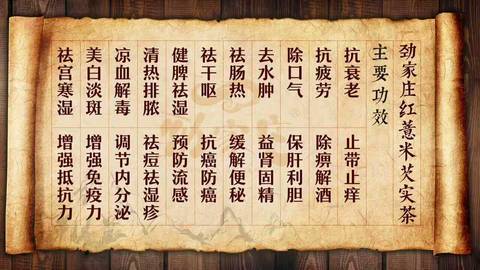 劲家庄红薏米芡实茶
主要功效
抗衰老 止带止痒
抗疲劳 除痹解酒
除口气 保肝利胆
去水肿 益肾固精
祛肠热 缓解便秘
祛干呕 抗癌防癌
健脾祛湿 预防流感
清热排脓 祛痘祛湿疹
凉血解毒 调节内分泌
美白淡斑 增强免疫力
祛宫寒湿 增强抵抗力